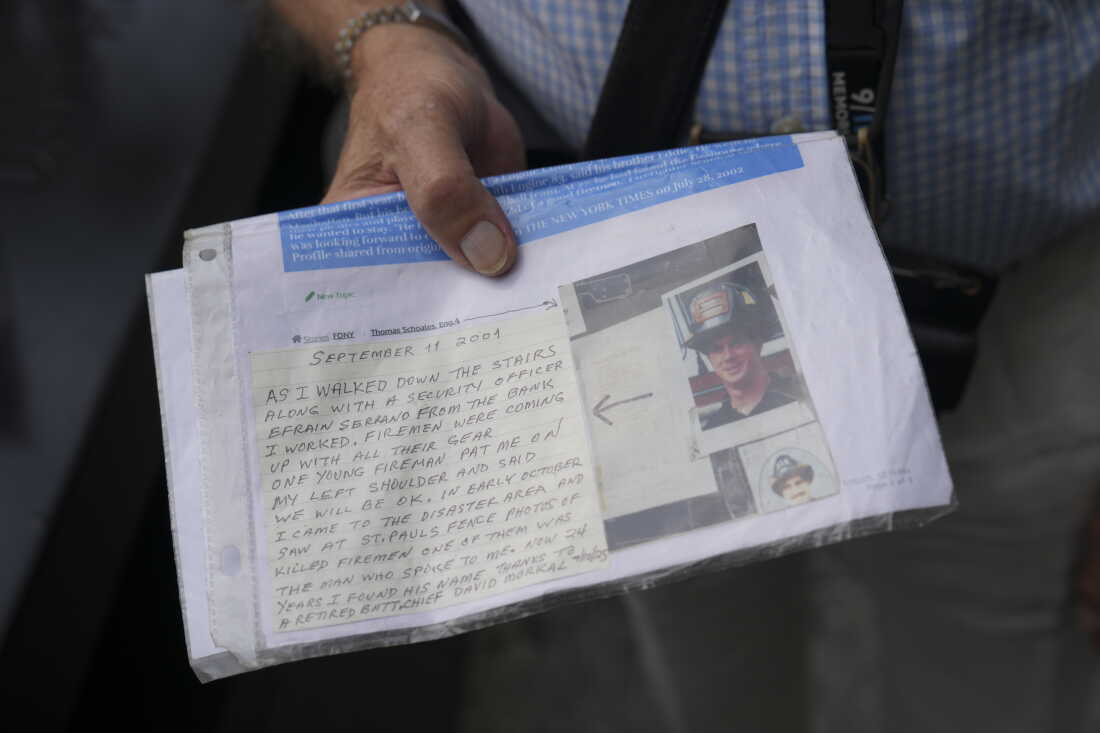 After that first year,
said his brother Eddie
Manhattan. But his
more picture and played
he wanted to stay. "He
a good fireman.
was looking forward to
Profile shared from
THE NEW YORK TIMES on July 28, 2002
New Topic
Stories FDNY Thomas Schoales, Eng.4
SEPTEMBER 11 2001
AS I WALKED DOWN THE STAIRS
ALONG WITH A SECURITY OFFICER
EFRAIN SERRANO FROM THE BANK
I WORKED. FIREMEN WERE COMING
UP WITH ALL THEIR GEAR
ONE YOUNG FIREMAN PAT ME ON
MY LEFT SHOULDER AND SAID
WE WILL BE OK. IN EARLY OCTOBER
I CAME TO THE DISASTER AREA AND
SAW AT ST. PAULS FENCE PHOTOS OF
KILLED FIREMEN ONE OF THEM WAS
THE MAN WHO SPOKE TO ME. NOW 24
YEARS I FOUND HIS NAME. THANKS TO
A RETIRED BATT. CHIEF DAVID MORKAL
9/
MEMO